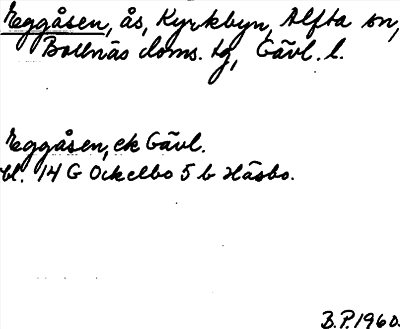 Eggåsen, ås, Kyrkbyn, Alfta sn,
Bollnäs doms. tg, Gävl. l.
Eggåsen, ek Gävl.
bl. 14 G Ockelbo 5 b Häsbo.
B.P. 1960.